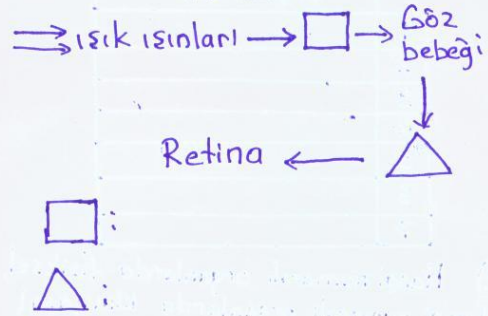 ışık ışınları
Göz
bebeği
Retina
:
: